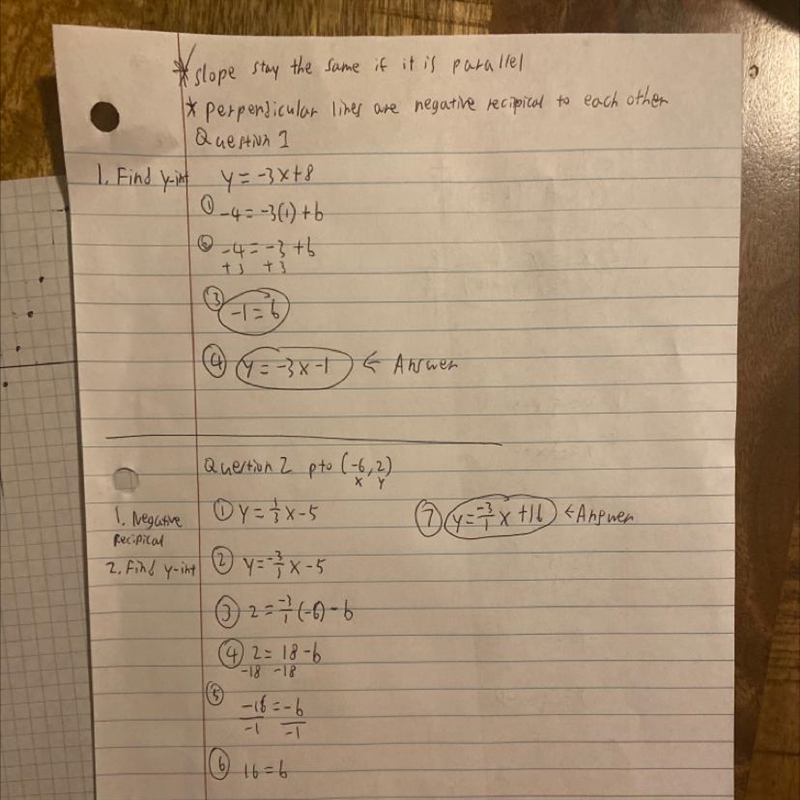 * slope stay the same if it is parallel
* perpendicular lines are negative recipical to each other
Question 1
1. Find y-int y = -3x+8
① -4 = -3(1) + b
② -4 = -3 + b
+3 +3
③ -1 = b
④ y = -3x-1 ← Answer
Question 2 pto (-6, 2)
x y
1. Negative Recipical
① y = 1/3 x - 5
⑦ y = -3/1 x + 16 ← Answer
2. Find y-int
② y = -3/1 x - 5
③ 2 = -3/1 (-6) - b
④ 2 = 18 - b
-18 -18
⑤ -16/-1 = -b/-1
⑥ 16 = b